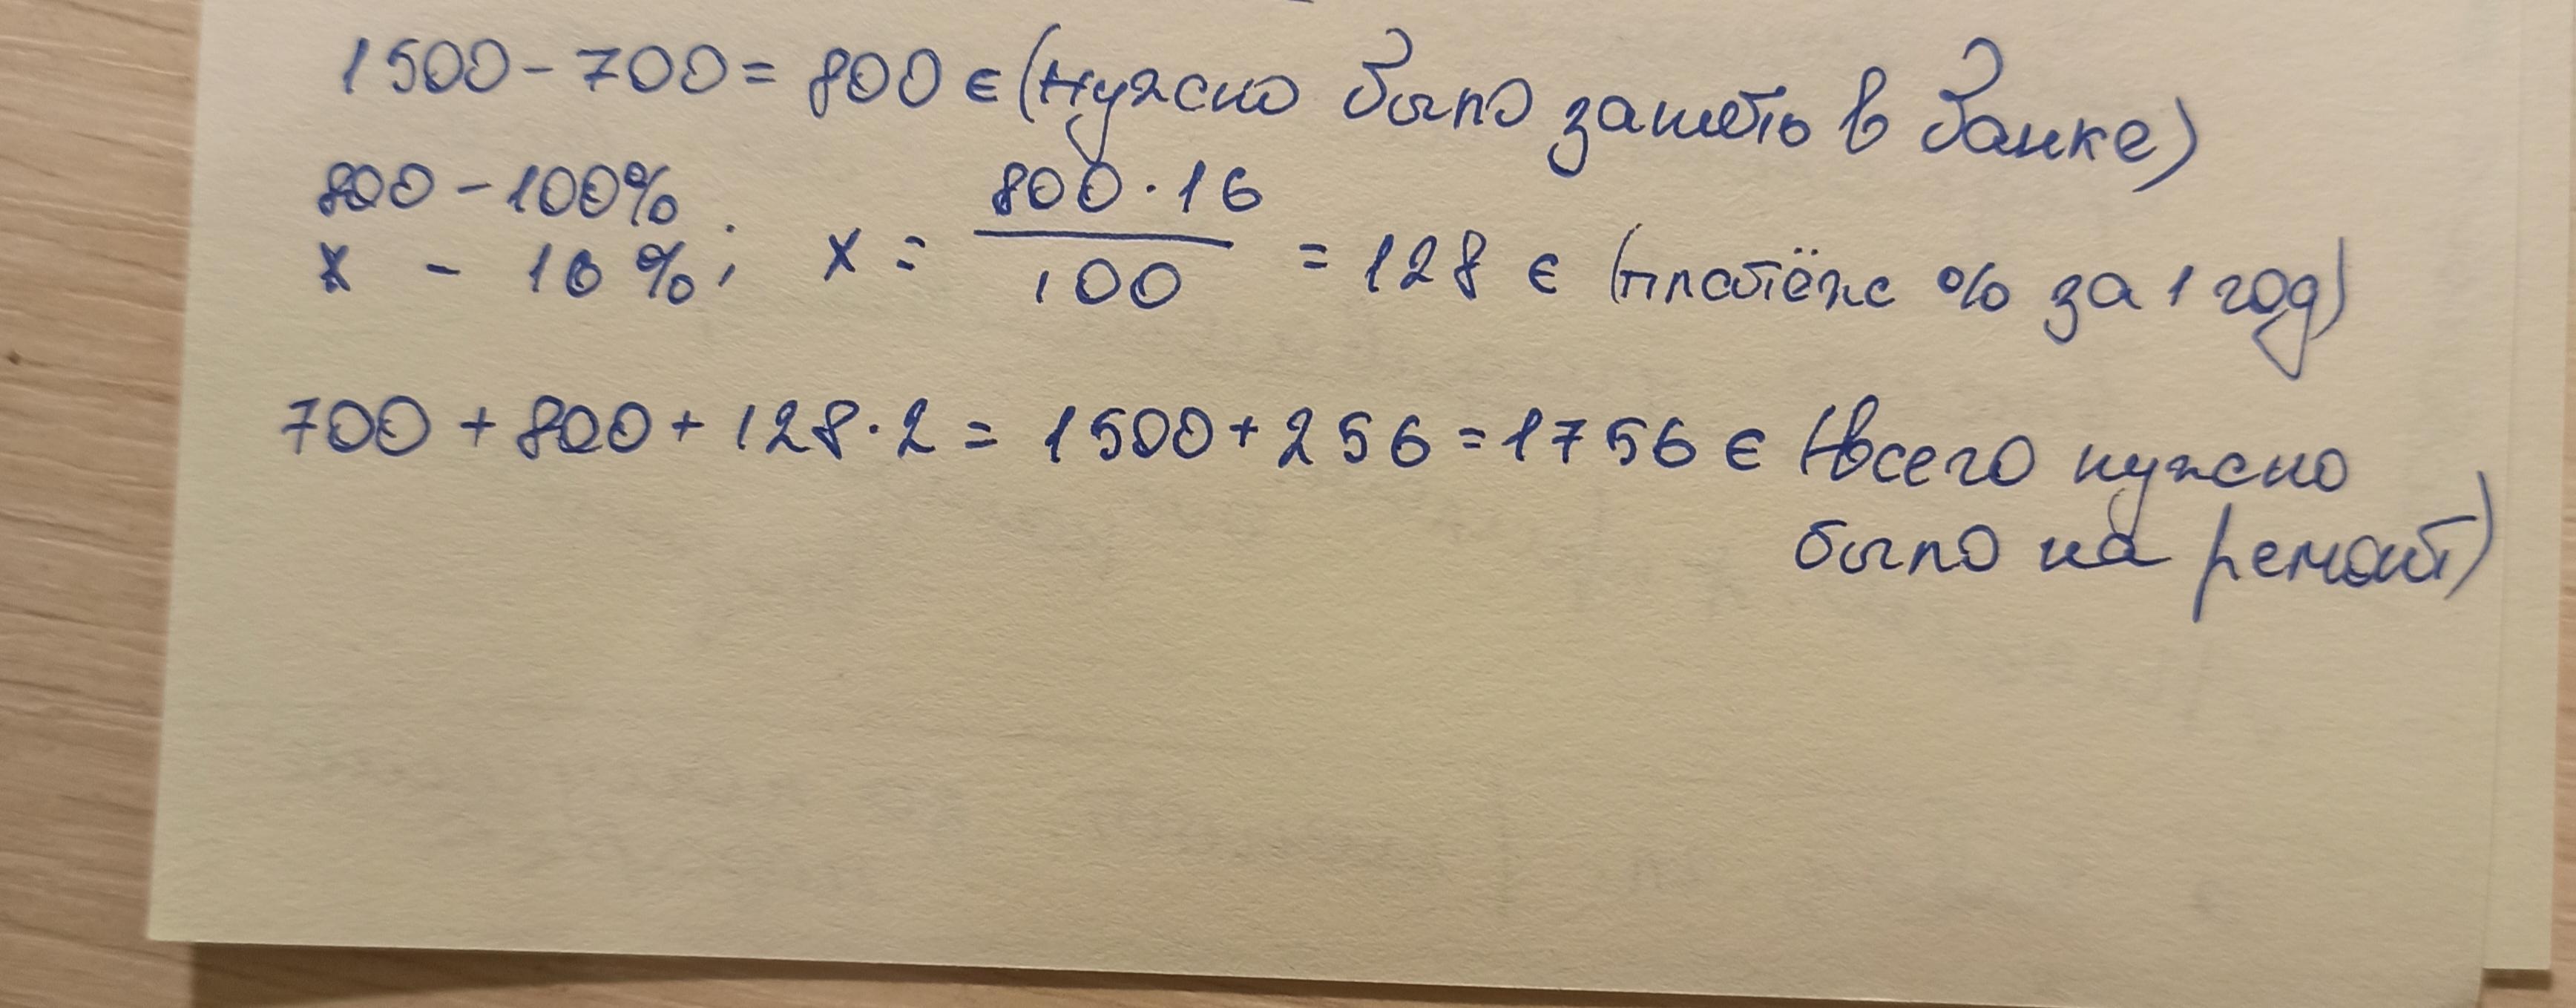 1500 - 700 = 800 € (нужно было занять в банке)
800 - 100%
x - 16%; x = 800 · 16 / 100 = 128 € (платёж % за 1 год)
700 + 800 + 128 · 2 = 1500 + 256 = 1756 € (всего нужно
было на ремонт)